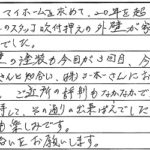 マイホームを求めて、20年を超
のステップ吹付押えの外壁が
でした。
の塗装も今回が3回目、今
さんと知り合い、(株)ユーホーさんにお
、ご近所の評判もなかなかで
待して、その通りの出来ばえでした
も楽しみです。
いをお願いします。